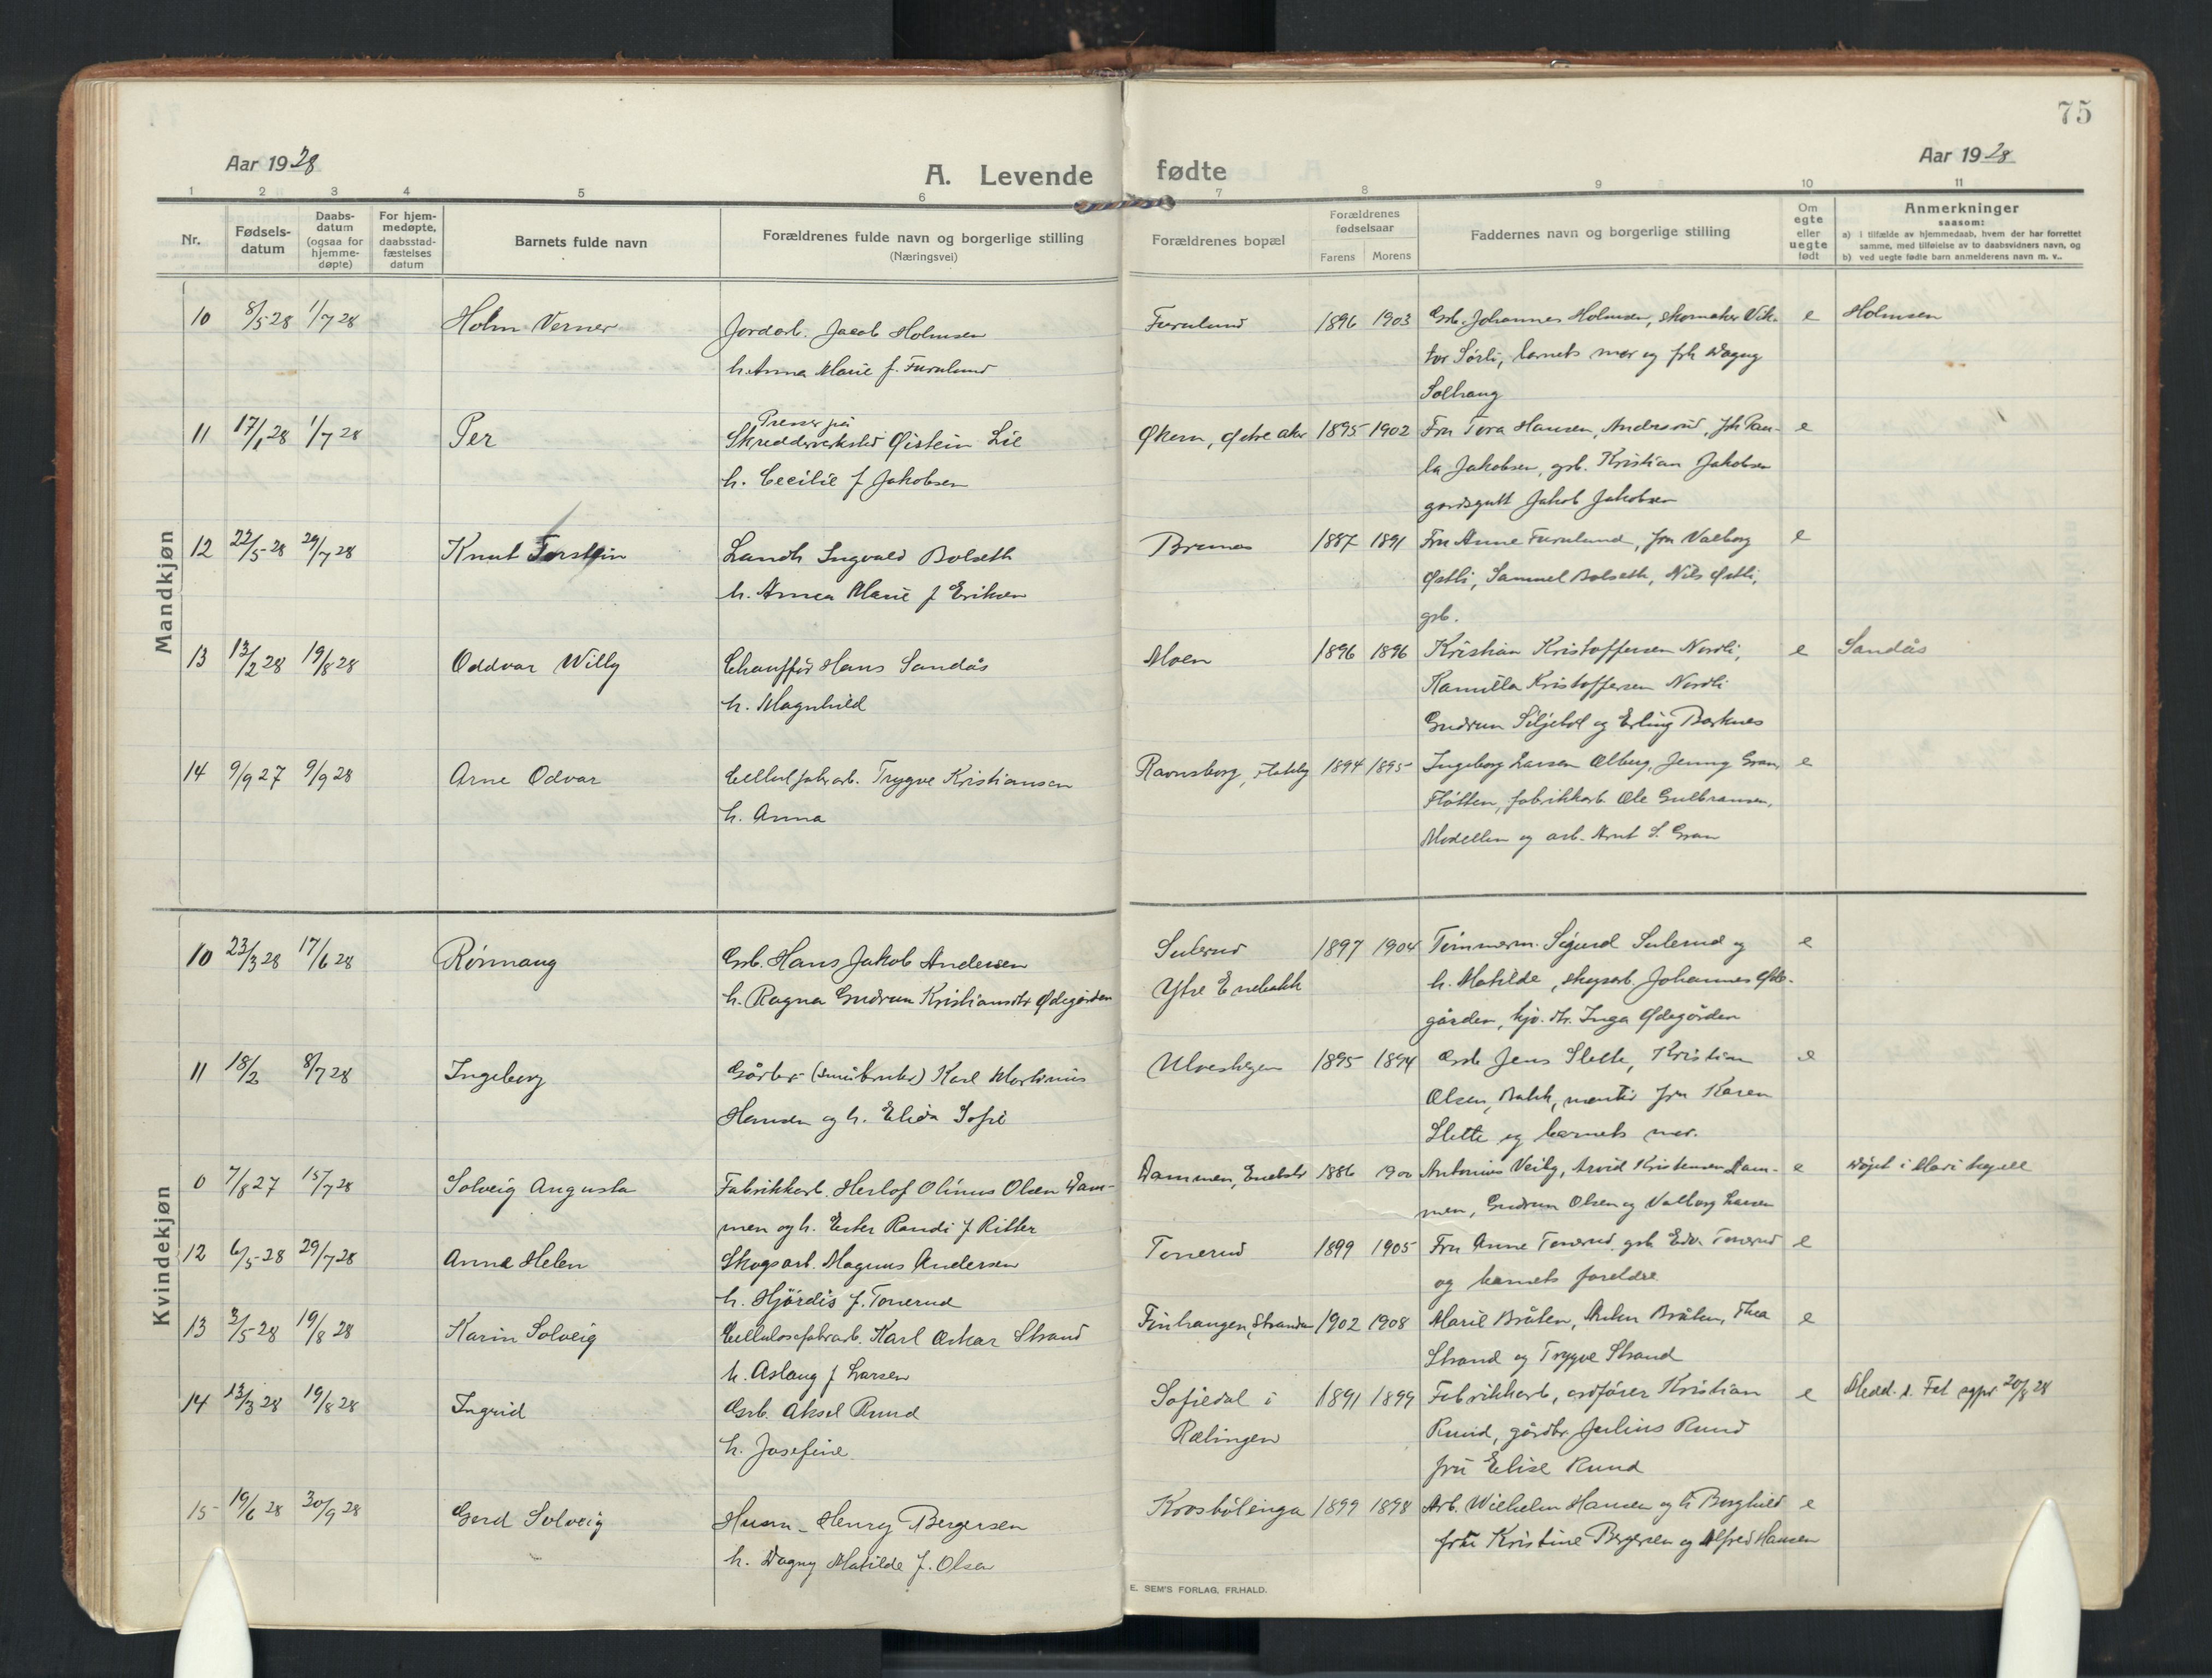 75
Aar 1928
A. Levende fødte
Aar 1928
1 2 3 4 5 6 7 8 9 10 11
Nr.
Fødsels-
datum
Daabs-
datum
(ogsaa for
hjemme-
døpte)
For hjem-
medøpte,
daabsstad-
fæstelses
datum
Barnets fulde navn
Forældrenes fulde navn og borgerlige stilling
(Næringsvei)
Forældrenes bopæl
Forældrenes
fødselsaar
Farens Morens
Faddernes navn og borgerlige stilling
Om
egte
eller
uegte
født
Anmerkninger
saasom:
a) i tilfælde av hjemmedaab, hvem der har forrettet
samme, med tilføielse av to daabsvidners navn, og
b) ved uegte fødte barn anmelderens navn m. v..
Mandkjøn
10 8/5 28 1/7 28 Holm Verner Jordarb. Jacob Holmsen Furulund 1896 1903 Grb. Johannes Holmsen, skomaker Vik- e Holmsen
h. Anna Marie f. Furulund tor Sørli, barnets mor og frk Dagny
Solhaug
Presser på
11 17/1 28 1/7 28 Per Skredderverksted Øistein Lie Økern, Østre aker 1895 1902 Fru Tora Hansen, Anderrud, frk Pau- e
h. Cecilie f Jakobsen la Jakobsen, grb. Kristian Jakobsen
gardsgutt Jakob Jakobsen
12 22/5 28 29/7 28 Knut Torstein Landh Ingvald Bolseth 1887 1891 Fru Anne Furulund, fru Valborg e
h. Anna Marie f Eriksen Østli, Samuel Bolseth, Nils Østli,
grb.
13 13/2 28 19/8 28 Oddvar Willy Chauffør Hans Sandås Moen 1896 1896 Kristian Kristoffersen Nordli, e Sandås
h. Magnhild Kamilla Kristoffersen Nordli
Gudrun Siljebøl og Erling Børknes
14 9/9 27 9/9 28 Arne Odvar Cellulfabrarb. Trygve Kristiansen Ravnsborg, Flateby 1894 1895 Ingeborg Larsen Ølberg, Jenny Gran, e
h. Anna Fløtten, fabrikkarb. Ole Gulbransen,
Modellen og arb. Arnt S. Gran
Kvindekjøn
10 23/3 28 17/6 28 Rønnaug Grb. Hans Jakob Andersen Sulerud 1897 1904 Tømmerm. Sigurd Sulerud og e
h. Ragna Gudrun Kristiansdtr Ødegården Ytre Enebakk h. Matilde, skogsarb. Johannes Øde-
gården, hjv. dtr. Inga Ødegården
11 18/2 8/7 28 Ingeborg Gårbr. (småbruker) Karl Martinius 1895 1894 Grb Jens Slette, Kristian e
Hansen og h. Elida Sofie Olsen, Bakk, fru Karen
Slette og barnets mor.
0 7/8 27 15/7 28 Solveig Augusta Fabrikkarb. Herlof Olinus Olsen Dam- Dammen, Enebakk 1886 1900 Antonius Veiby, Arvid Kristensen Dam- e Døpt i Mari kapell
men og h. Ester Randi f Ritter men, Gudrun Olsen og Valborg Larsen
12 6/5 28 29/7 28 Anna Helen Skogsarb. Magnus Andersen Tonerud 1899 1905 Fru Anne Tonerud, grb Edv. Tonerud e
h. Hjørdis f. Tonerud og barnets foreldre
13 3/5 28 19/8 28 Karin Solveig Cellulosefabrarb. Karl Oskar Strand Finhaugen, Stranden 1902 1908 Marie Bråten, Anton Bråten, Thea e
h. Aslaug f Larsen Strand og Trygve Strand
14 13/3 28 19/8 28 Ingrid Grb. Aksel Rund Sofiedal i 1891 1899 Fabrikkarb, ordfører Kristian e Medd. t. Fet sgpr 20/8 28
h. Josefine Rælingen Rund, gårdbr. Julius Rund
fru Elise Rund
15 19/6 28 30/9 28 Gerd Solveig Husm. Henry Bergersen Krosbølenga 1899 1898 Arb. Wilhelm Hansen og h Borghild e
h. Dagny Matilde f. Olsen fru Kristine Bergersen og Alfred Hansen
E. SEM'S FORLAG, FR.HALD.